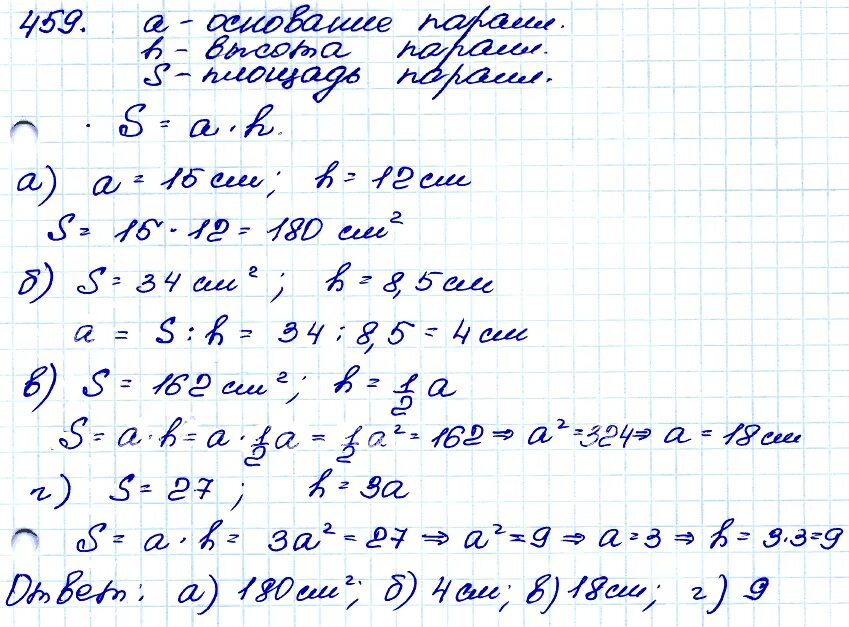 459. a - основание паралл.
h - высота паралл.
S - площадь паралл.
S = a · h.
а) a = 15 см; h = 12 см
S = 15 · 12 = 180 см²
б) S = 34 см²; h = 8,5 см
a = S : h = 34 : 8,5 = 4 см
в) S = 162 см²; h = 1/2 a
S = a · h = a · 1/2 a = 1/2 a² = 162 ⇒ a² = 324 ⇒ a = 18 см
г) S = 27; h = 3a
S = a · h = 3a² = 27 ⇒ a² = 9 ⇒ a = 3 ⇒ h = 3·3=9
Ответ: а) 180 см²; б) 4 см; в) 18 см; г) 9